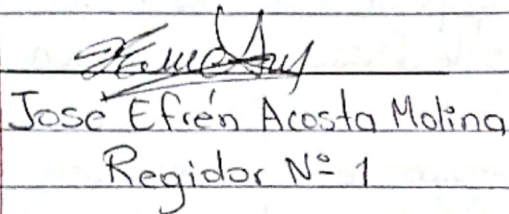 José Efrén Acosta Molina
Regidor Nº 1